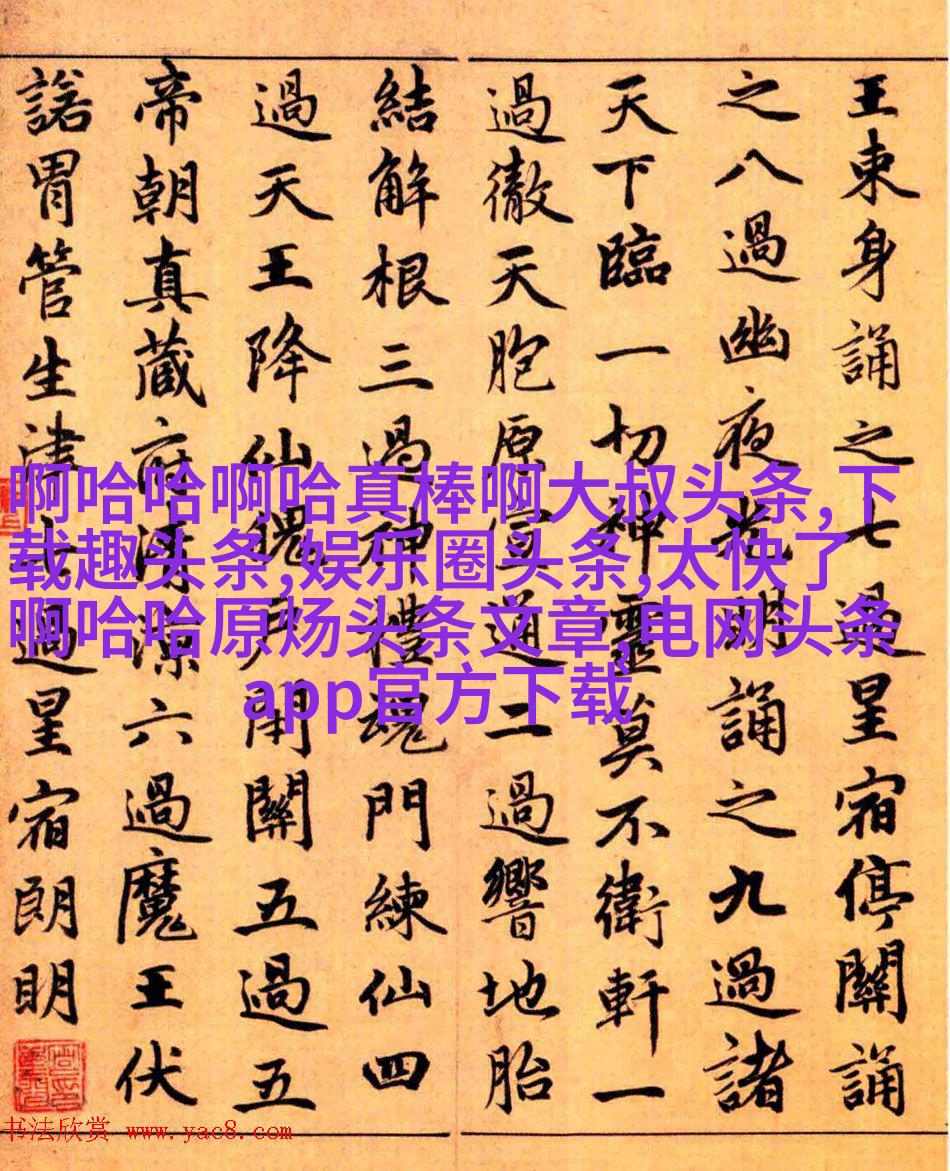 王東身誦之七過星宿停關誦
之八過幽夜光明誦之九過諸
天下臨一切神靈莫不衛軒一
過徹天胞原宣通二過響地胎
結解根三過神禮魂門練仙四
過天王降仙魄戶開關五過五
帝朝真藏府清涼六過魔王伏
諾胃管生津七過星宿朗明
啊哈哈啊哈真棒啊大叔头条,下
载趣头条,娱乐圈头条,太快了
啊哈哈原炀头条文章,电网头条
app官方下载
书法欣赏 www.yac8.com